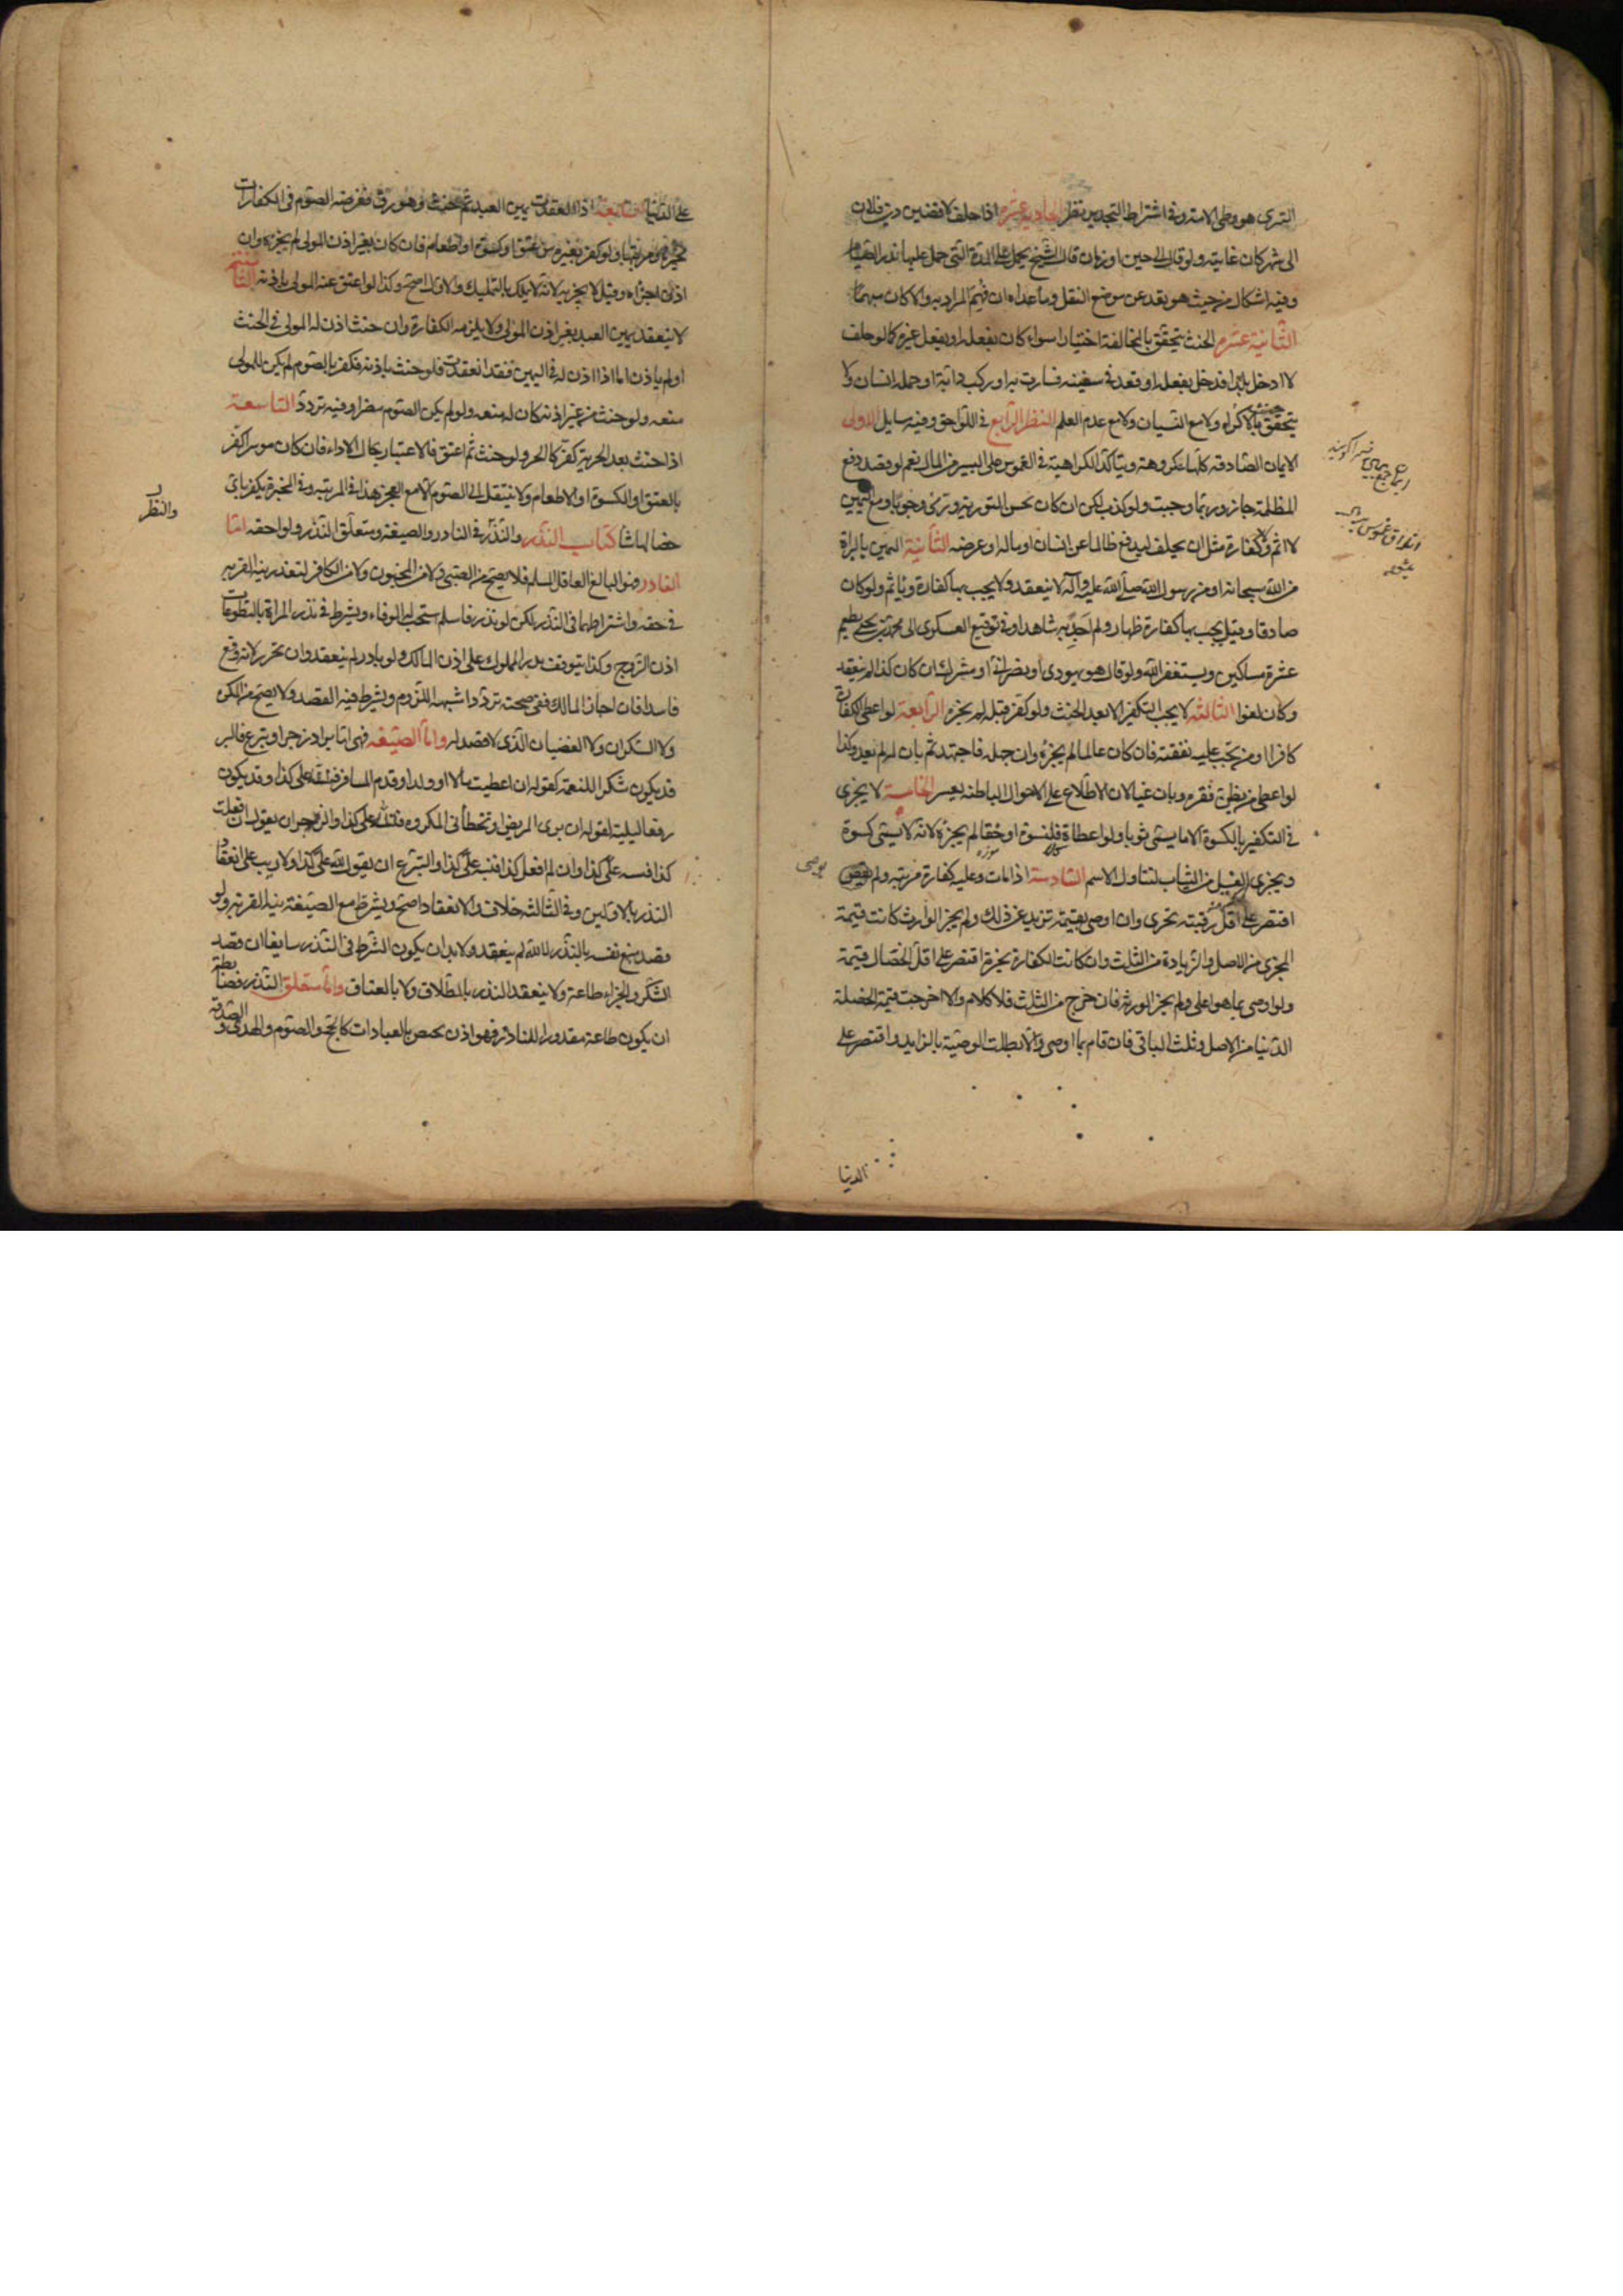 التسرى هو وطى الامة وفى اشتراط التخدير نظر الحادية عشرة اذا حلف لاقضين دين فلان
الى شهر كان غاية ولو قال الى حين او زمان قال الشيخ يحمل على المدة التى حمل عليها نذر الصيام
وفيه اشكال من حيث هو بعد عن موضع النقل وما عداه ان فهم المراد به والا كان مبهما
الثانية عشرة الحنث يتحقق بالمخالفة اختيارا سواء كان بفعله او بفعل غيره كما لو حلف
لا ادخل بلدا فدخل بفعله او قعد فى سفينة فسارت به او ركب دابة او حمله انسان ولا
يتحقق الحنث بالاكراه ولا مع النسيان ولا مع عدم العلم النظر الرابع فى اللواحق وفيه مسايل الاولى
الايمان الصادقة كلها مكروهة ويتاكد الكراهية فى الغموس على اليسير من المال نعم لو قصد دفع
المظلمة جاز وربما وجبت ولو كذب لكن ان كان يحسن التورية ورى وجوبا ومع اليمين
لا اثم ولا كفارة مثل ان يحلف ليدفع ظالما عن انسان او ماله او عرضه الثانية اليمين بالبراة
من الله سبحانه او من رسول الله صلى الله عليه وآله لا ينعقد ولا يجب بها كفارة وياثم ولو كان
صادقا وقيل يجب بها كفارة ظهار ولم اجد به شاهدا وفى توقيع العسكرى الى محمد بن يحيى يطعم
عشرة مساكين ويستغفر الله ولو قال هو يهودى او نصرانى او مشرك ان كان كذا لم ينعقد
وكان لغوا الثالثة لا يجب التكفير الا بعد الحنث ولو كفر قبله لم يجزه الرابعة لو اعطى الكفارة
كافرا او من تجب عليه نفقته فان كان عالما لم يجزه وان جهل فاجتهد ثم بان له لم يعد وكذا
لو اعطى من يظن فقره وبان غنيا لان الاطلاع على الاحوال الباطنة يعسر الخامسة لا يجزى
فى التكفير بالكسوة الا ما يسمى ثوبا ولو اعطاه قلنسوة او خفا لم يجزه لانه لا يسمى كسوة
ويجزى الغسيل من الثياب لتناول الاسم السادسة اذا مات وعليه كفارة مرتبة ولم يوص
اقتصر على اقل رقبة تجزى وان اوصى بقيمة تزيد عن ذلك ولم يجز الوارث كانت قيمة
المجزى من الاصل والزيادة من الثلث وان كانت الكفارة مخيرة اقتصر على اقل الخصال قيمة
ولو اوصى بما هو اعلى ولم يجز الورثة فان خرج من الثلث فلا كلام والا اخرجت قيمة الخصلة
الدنيا من الاصل وثلث الباقى فان قام بما اوصى والا بطلت الوصية بالزايد واقتصر على
الدنيا
يوصى
على الدنيا السابعة اذا انعقدت يمين العبد ثم حنث وهو رق ففرضه الصوم فى الكفارات
مخيرها ومرتبها ولو كفر بغيره من عتق او كسوة او اطعام فان كان بغير اذن المولى لم يجزه وان
اذن اجزاه وقيل لا يجزيه لانه لا يملك بالتمليك والاول اصح وكذا لو اعتق عنه المولى باذنه الثامنة
لا ينعقد يمين العبد بغير اذن المولى ولا يلزمه الكفارة وان حنث اذن له المولى فى الحنث
او لم ياذن اما اذا اذن له فى اليمين فقد انعقدت فلو حنث باذنه فكفر بالصوم لم يكن للمولى
منعه ولو حنث من غير اذنه كان له منعه ولو لم يكن الصوم مضرا وفيه تردد التاسعة
اذا حنث بعد الحرية كفر كالحر ولو حنث ثم اعتق فالاعتبار بحال الاداء فان كان موسرا كفر
بالعتق او الكسوة او الاطعام ولا ينتقل الى الصوم الا مع العجز هذا فى المرتبة وفى المخيرة يكفر باى
خصالها شا كتاب النذر والنذر فى الناذر والصيغة ومتعلق النذر ولواحقه اما
الناذر فهو البالغ العاقل المسلم فلا يصح من الصبى ولا من المجنون ولا من الكافر لتعذر نية القربة
فى حقه واشتراطها فى النذر لكن لو نذر فاسلم استحب له الوفاء ويشرط فى نذر المراة بالتطوعات
اذن الزوج وكذا يتوقف نذر المملوك على اذن المالك ولو بادر لم ينعقد وان تحرر لانه وقع
فاسدا فان اجاز المالك ففى صحته تردد اشبهه اللزوم ويشرط فيه القصد ولا يصح من المكره
ولا السكران ولا الغضبان الذى لا قصد له واما الصيغة فهى اما بر او زجر او تبرع فالبر
قد يكون شكرا للنعمة كقوله ان اعطيت مالا او ولدا او قدم المسافر فلله على كذا وقد يكون
دفعا لبلية كقوله ان برى المريض او تخطأنى المكروه فلله على كذا والزجر ان يقول ان فعلت
كذا فلله على كذا وان لم افعل كذا فلله على كذا والتبرع ان يقول لله على كذا ولا ريب على انعقاد
النذر بالاولين وفى الثالثة خلاف والانعقاد اصح ويشرط مع الصيغة نية القربة ولو
قصد منع نفسه بالنذر لا لله لم ينعقد ولا بد ان يكون الشرط فى النذر سايغا ان قصد
الشكر والجزاء طاعة ولا ينعقد النذر بالطلاق ولا بالعتاق واما متعلق النذر فضابطه
ان يكون طاعة مقدورا للناذر فهو اذن يختص بالعبادات كالحج والصوم والهدى والصدقة
والنظر